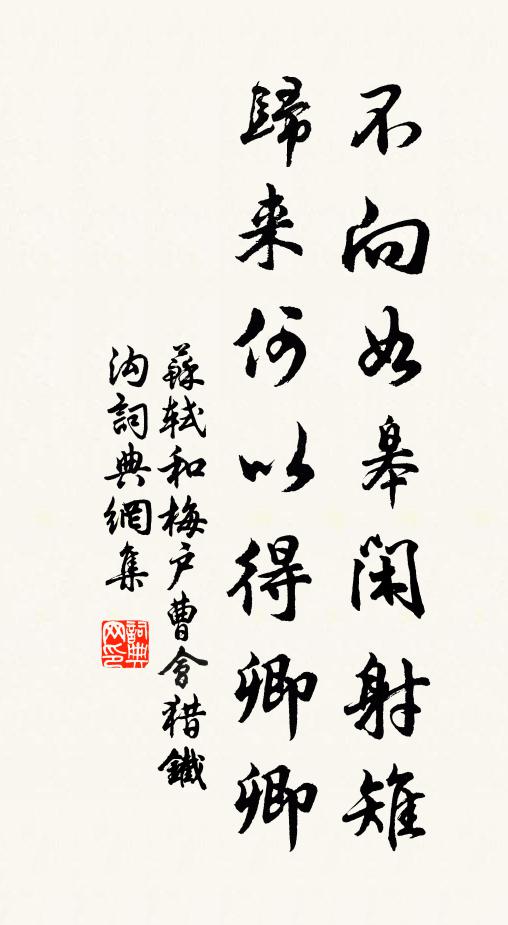 不向如皋閑射雉
歸来何以得卿卿
蘇軾和梅户曹會猎鐵
沟詞典網集
詞典网印